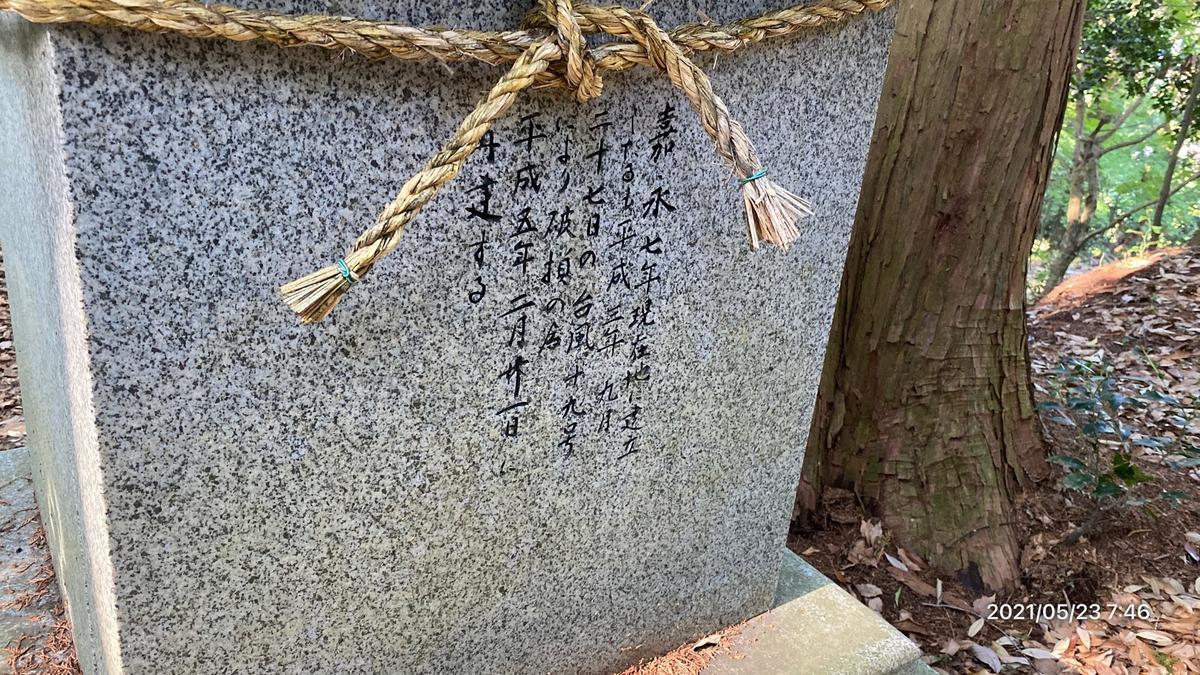 嘉永七年現在地に建立
したるも平成三年九月
二十七日の台風十九号
により破損の為
平成五年二月廿一日に
再建する
2021/05/23 7:46